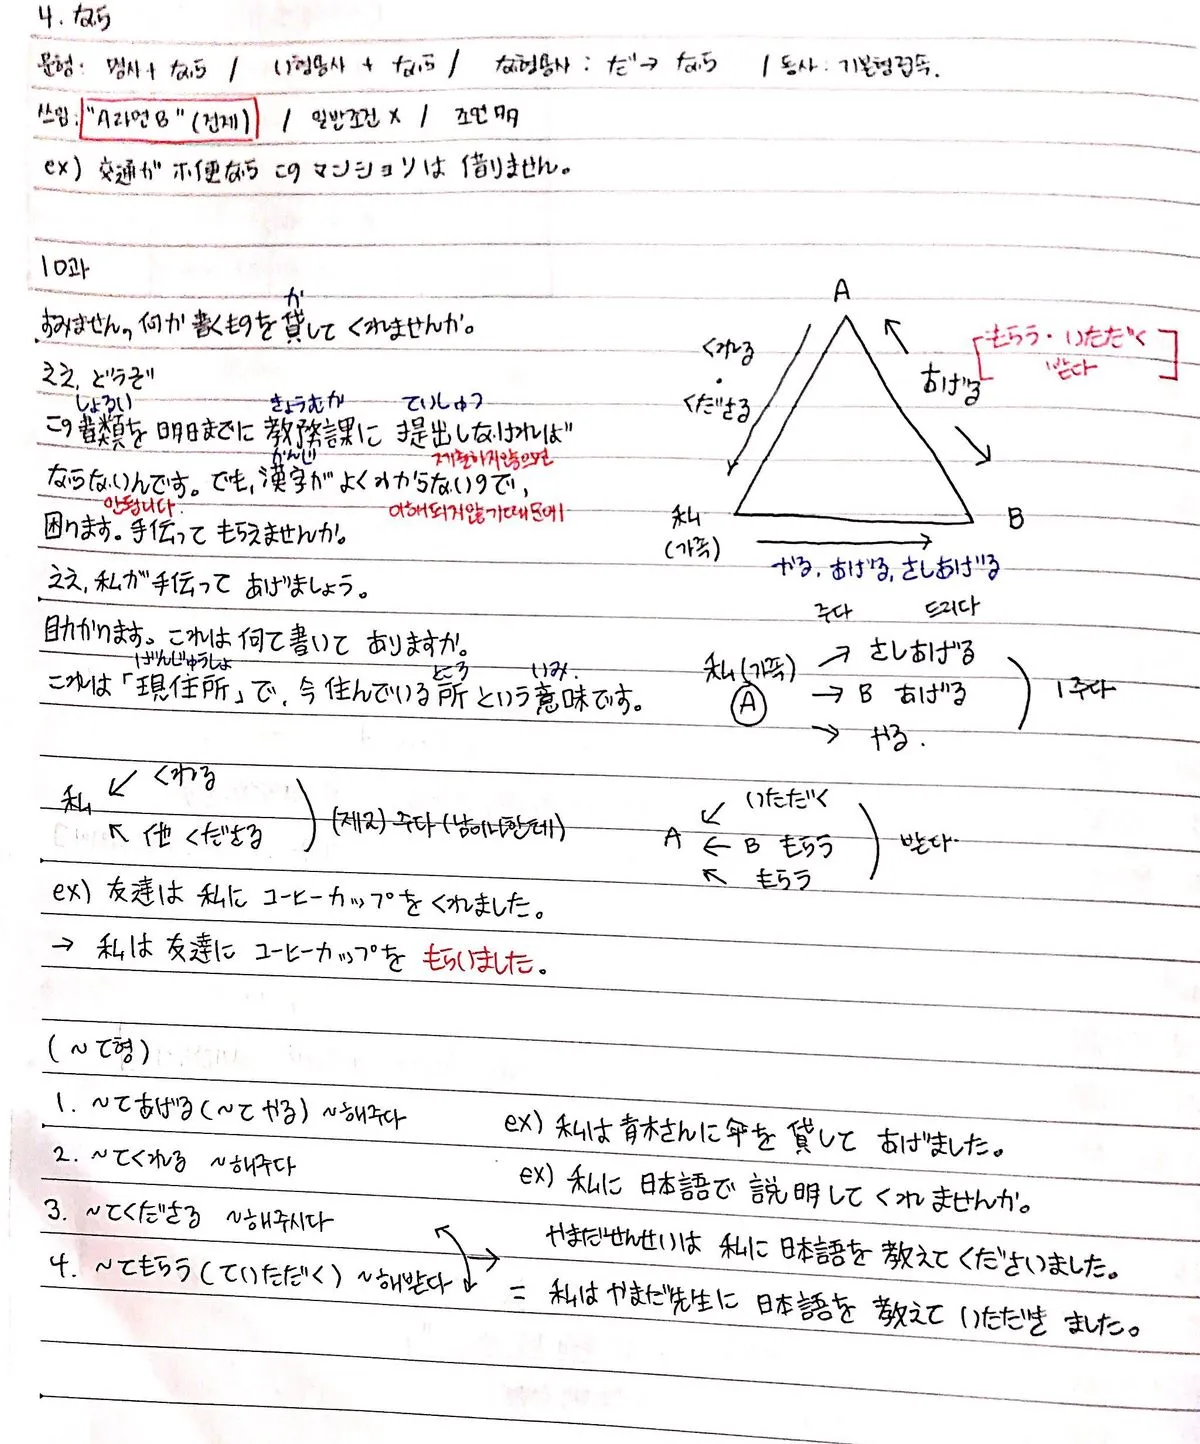 4. なら
문형: 명사+ なら / い형용사 + なら / な형용사 : だ→ なら / 동사: 기본형접속.
쓰임: "A라면 B" (전제) / 일반조건 X / 조언
ex) 交通が 不便なら この マンションは 借りません。
10과
か
すみません。何か 書くものを 貸して くれませんか。
ええ, どうぞ
しょるい きょうむか ていしゅつ
この 書類を 明日までに 教務課に 提出しなければ
かんじ 제출하지않으면
ならないんです。でも, 漢字が よくわからないので,
안됩니다. 이해되지않기때문에
困ります。手伝って もらえませんか。
ええ, 私が 手伝って あげましょう。
助かります。これは 何て 書いて ありますか。
げんじゅうしょ ところ いみ.
これは「現住所」で, 今 住んでいる 所 という 意味です。
A
くれる
・
くださる
あげる
もらう・いただく
받다
私
(가족)
B
やる, あげる, さしあげる
주다 드리다
私(가족) → さしあげる
A → B あげる
→ やる.
주다
私 ↙ くれる
↖ 他 くださる
(제3) 주다 (남이나한테)
↙ いただく
A ← B もらう
↖ もらう
받다
ex) 友達は 私に コーヒーカップを くれました。
→ 私は 友達に コーヒーカップを もらいました。
(~て形)
1. ~てあげる(~て やる) ~해주다 ex) 私は 青木さんに 傘を 貸して あげました。
2. ~てくれる ~해주다 ex) 私に 日本語で 説明して くれませんか。
3. ~てくださる ~해주시다 やまだせんせいは 私に 日本語を 教えて くださいました。
4. ~てもらう(ていただく) ~해받다 = 私は やまだ先生に 日本語を 教えて いただき ました。